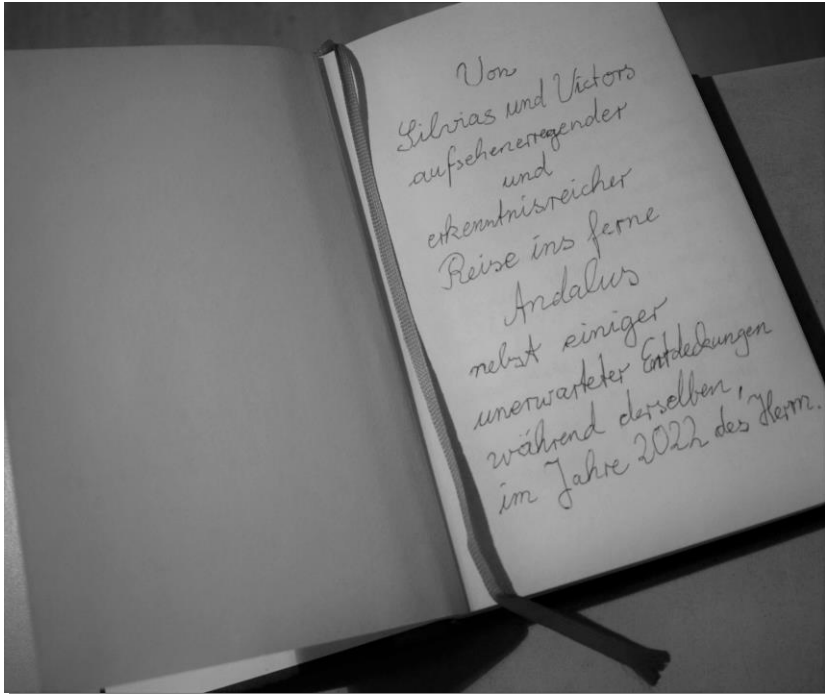 Von
Silvias und Victors
aufsehenerregender
und
erkenntnisreicher
Reise ins ferne
Andalus
nebst einiger
unerwarteter Entdeckungen
während derselben,
im Jahre 2022 des Herrn.